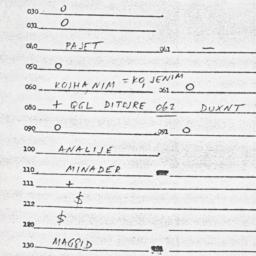 030 0
031 0
040 PAJET 041 —
050 0
060 KOJHA,NIM = KO, JENIM 061 0
080 + GGL DITCJRE 062 DUXNT
090 0 091 0
100 ANALIJE
110 MINADER
111 +
212 $
220 $
230 MAGGID